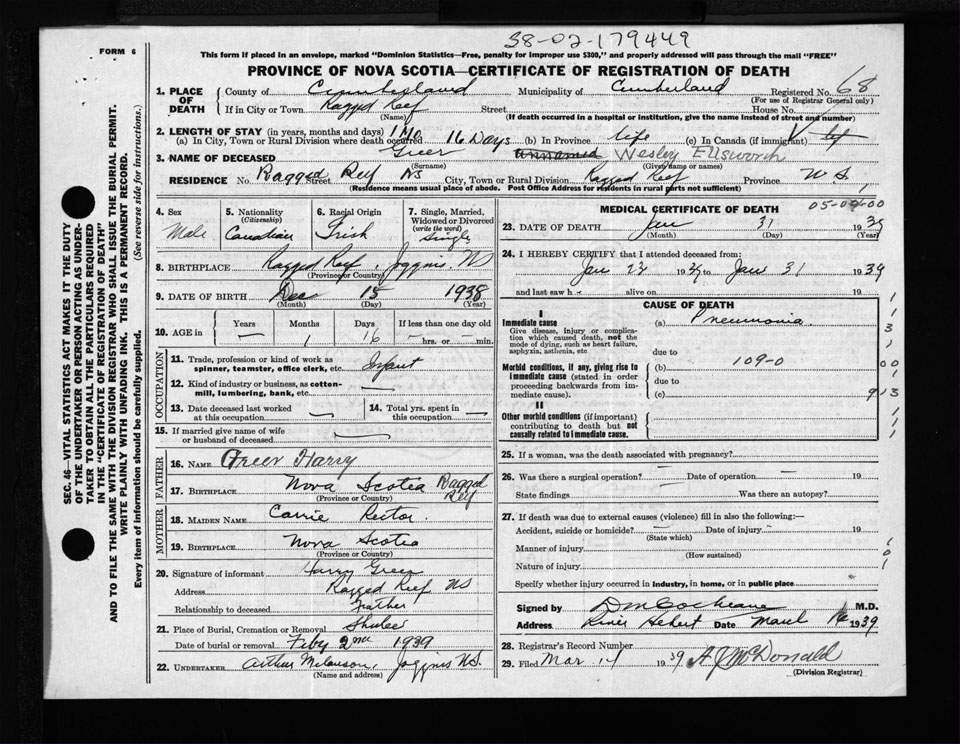 38-02-179449
FORM 6
This form if placed in an envelope, marked "Dominion Statistics—Free, penalty for improper use $300," and properly addressed will pass through the mail "FREE"
PROVINCE OF NOVA SCOTIA—CERTIFICATE OF REGISTRATION OF DEATH
1. PLACE OF DEATH County of Cumberland Municipality of Cumberland Registered No. 68
(For use of Registrar General only)
If in City or Town Ragged Reef Street House No.
(Name) (If death occurred in a hospital or institution, give the name instead of street and number)
2. LENGTH OF STAY (in years, months and days)
(a) In City, Town or Rural Division where death occurred 1 Mo 16 Days (b) In Province life (c) In Canada (if immigrant)
3. NAME OF DECEASED Greer Unnamed Wesley Ellsworth
(Surname) (Given names or name)
RESIDENCE No. Ragged Street Reef NS City, Town or Rural Division Ragged Reef Province N.S.
(Residence means usual place of abode. Post Office Address for residents in rural parts not sufficient)
4. Sex Male
5. Nationality (Citizenship) Canadian
6. Racial Origin Irish
7. Single, Married, Widowed or Divorced (write the word) Single
8. BIRTHPLACE Ragged Reef, Joggins, NS
(Province or Country)
9. DATE OF BIRTH Dec 15 1938
(Month) (Day) (Year)
10. AGE in Years — Months 1 Days 16 If less than one day old
— hrs. or — min.
OCCUPATION
11. Trade, profession or kind of work as spinner, teamster, office clerk, etc. Infant
12. Kind of industry or business, as cotton-mill, lumbering, bank, etc.
13. Date deceased last worked at this occupation
14. Total yrs. spent in this occupation
15. If married give name of wife or husband of deceased
FATHER
16. NAME Greer Harry
17. BIRTHPLACE Nova Scotia Ragged Reef
(Province or Country)
MOTHER
18. MAIDEN NAME Carrie Rector
19. BIRTHPLACE Nova Scotia
(Province or Country)
20. Signature of informant Harry Greer
Address Ragged Reef NS
Relationship to deceased Father
21. Place of Burial, Cremation or Removal Shulee
Date of burial or removal Feby 2nd 1939
22. UNDERTAKER Joggins NS.
(Name and address)
MEDICAL CERTIFICATE OF DEATH
23. DATE OF DEATH Jan 31 1939
(Month) (Day) (Year)
24. I HEREBY CERTIFY that I attended deceased from:
Jan to Jan 31 1939
and last saw h alive on 19
CAUSE OF DEATH
I
Immediate cause (a) Pneumonia
Give disease, injury or complication which caused death, not the mode of dying, such as heart failure, asphyxia, asthenia, etc
due to
Morbid conditions, if any, giving rise to immediate cause (stated in order proceeding backwards from immediate cause) (b) 109-0
due to
(c)
II
Other morbid conditions (if important) contributing to death but not causally related to immediate cause.
25. If a woman, was the death associated with pregnancy?
26. Was there a surgical operation? Date of operation 19
State findings Was there an autopsy?
27. If death was due to external causes (violence) fill in also the following:—
Accident, suicide or homicide? Date of injury 19
(State which)
Manner of injury
(How sustained)
Nature of injury
Specify whether injury occurred in industry, in home, or in public place
Signed by D M Cochrane M.D.
Address River Hebert Date March 1939
28. Registrar's Record Number
29. Filed Mar 14 1939 A J McDonald
(Division Registrar)
SEC. 46—VITAL STATISTICS ACT MAKES IT THE DUTY OF THE UNDERTAKER OR PERSON ACTING AS UNDERTAKER TO OBTAIN ALL THE PARTICULARS REQUIRED IN THE "CERTIFICATE OF REGISTRATION OF DEATH" AND TO FILE THE SAME WITH THE DIVISION REGISTRAR WHO SHALL ISSUE THE BURIAL PERMIT.
WRITE PLAINLY WITH UNFADING INK. THIS IS A PERMANENT RECORD.
Every item of information should be carefully supplied. (See reverse side for instructions.)